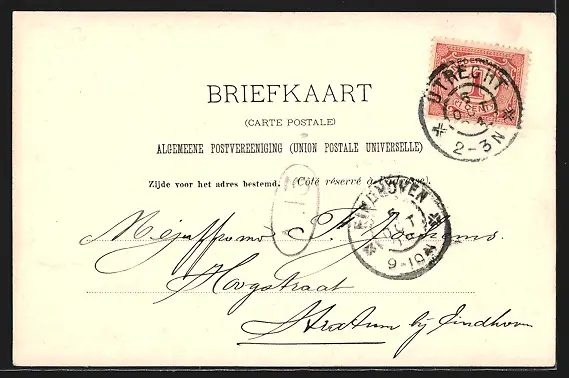 BRIEFKAART
(CARTE POSTALE)
ALGEMEENE POSTVEREENIGING (UNION POSTALE UNIVERSELLE)
Zijde voor het adres bestemd. (Côté réservé à l'adresse).
UTRECHT
2-3N
1 CENT
EINDHOVEN
OCT
9-10
Mejuffrouw
Hoogstraat
Stratum bij Eindhoven